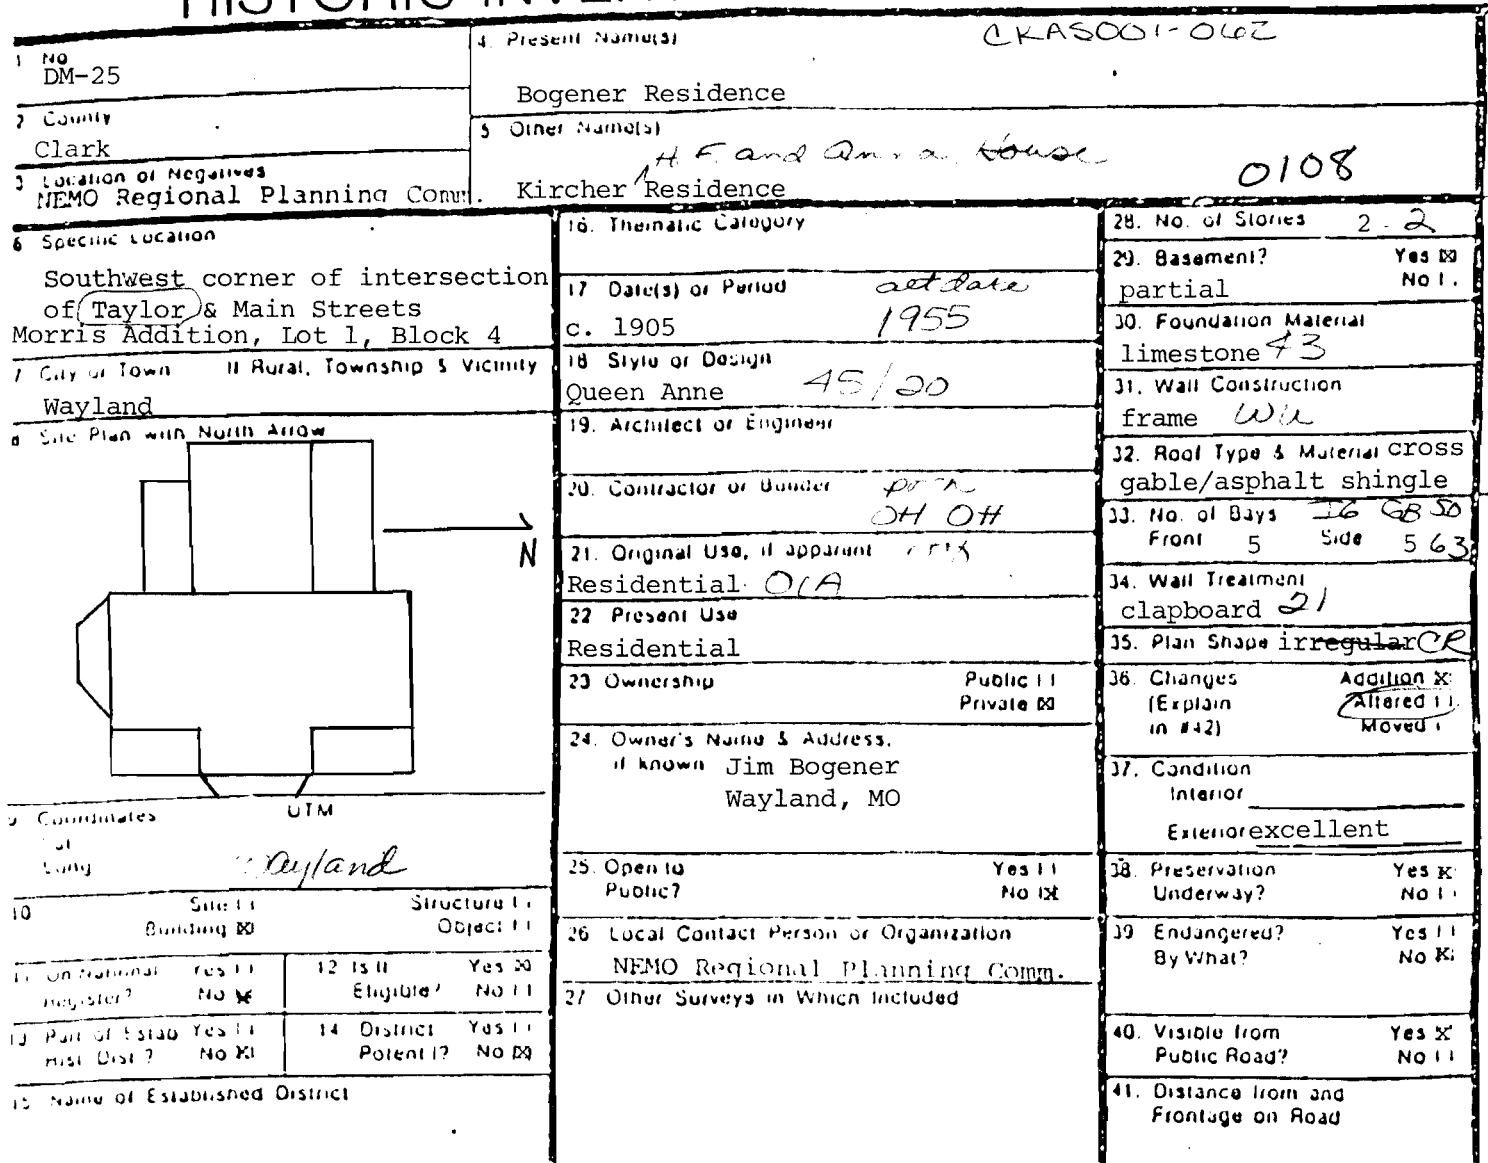 HISTORIC INVE
1 No
DM-25
4. Present Name(s)
CKAS001-062
Bogener Residence
2 County
Clark
5 Other Name(s)
H.F. and Anna House
Kircher Residence
0108
3 Location of Negatives
NEMO Regional Planning Comm.
6 Specific Location
Southwest corner of intersection
of Taylor & Main Streets
Morris Addition, Lot 1, Block 4
7 City or Town If Rural, Township & Vicinity
Wayland
8 Site Plan with North Arrow
N
9 Coordinates UTM
Lat
Long
Wayland
10 Site Structure
Building ☒ Object
11 On National Yes
Register? No ☒
12 Is It Yes ☒
Eligible? No
13 Part of Estab Yes
Hist. Dist.? No ☒
14 District Yes
Potent'l? No ☒
15 Name of Established District
16. Thematic Category
17 Date(s) or Period
alt date
c. 1905 1955
18 Style or Design
Queen Anne 45/20
19. Architect or Engineer
20. Contractor or Builder
porch
OH OH
21. Original Use, if apparent
Residential 01A
22 Present Use
Residential
23 Ownership Public
Private ☒
24. Owner's Name & Address,
if known Jim Bogener
Wayland, MO
25. Open to Yes
Public? No ☒
26 Local Contact Person or Organization
NEMO Regional Planning Comm.
27 Other Surveys in Which Included
28. No. of Stories 2 . 2
29. Basement? Yes ☒
partial No
30. Foundation Material
limestone 43
31. Wall Construction
frame WU
32. Roof Type & Material cross
gable/asphalt shingle
33. No. of Bays IG GB SO
Front 5 Side 5 63
34. Wall Treatment
clapboard 21
35. Plan Shape irregular CR
36. Changes Addition X
(Explain Altered
in #42) Moved
37. Condition
Interior
Exterior excellent
38. Preservation Yes X
Underway? No
39 Endangered? Yes
By What? No X
40. Visible from Yes X
Public Road? No
41. Distance from and
Frontage on Road